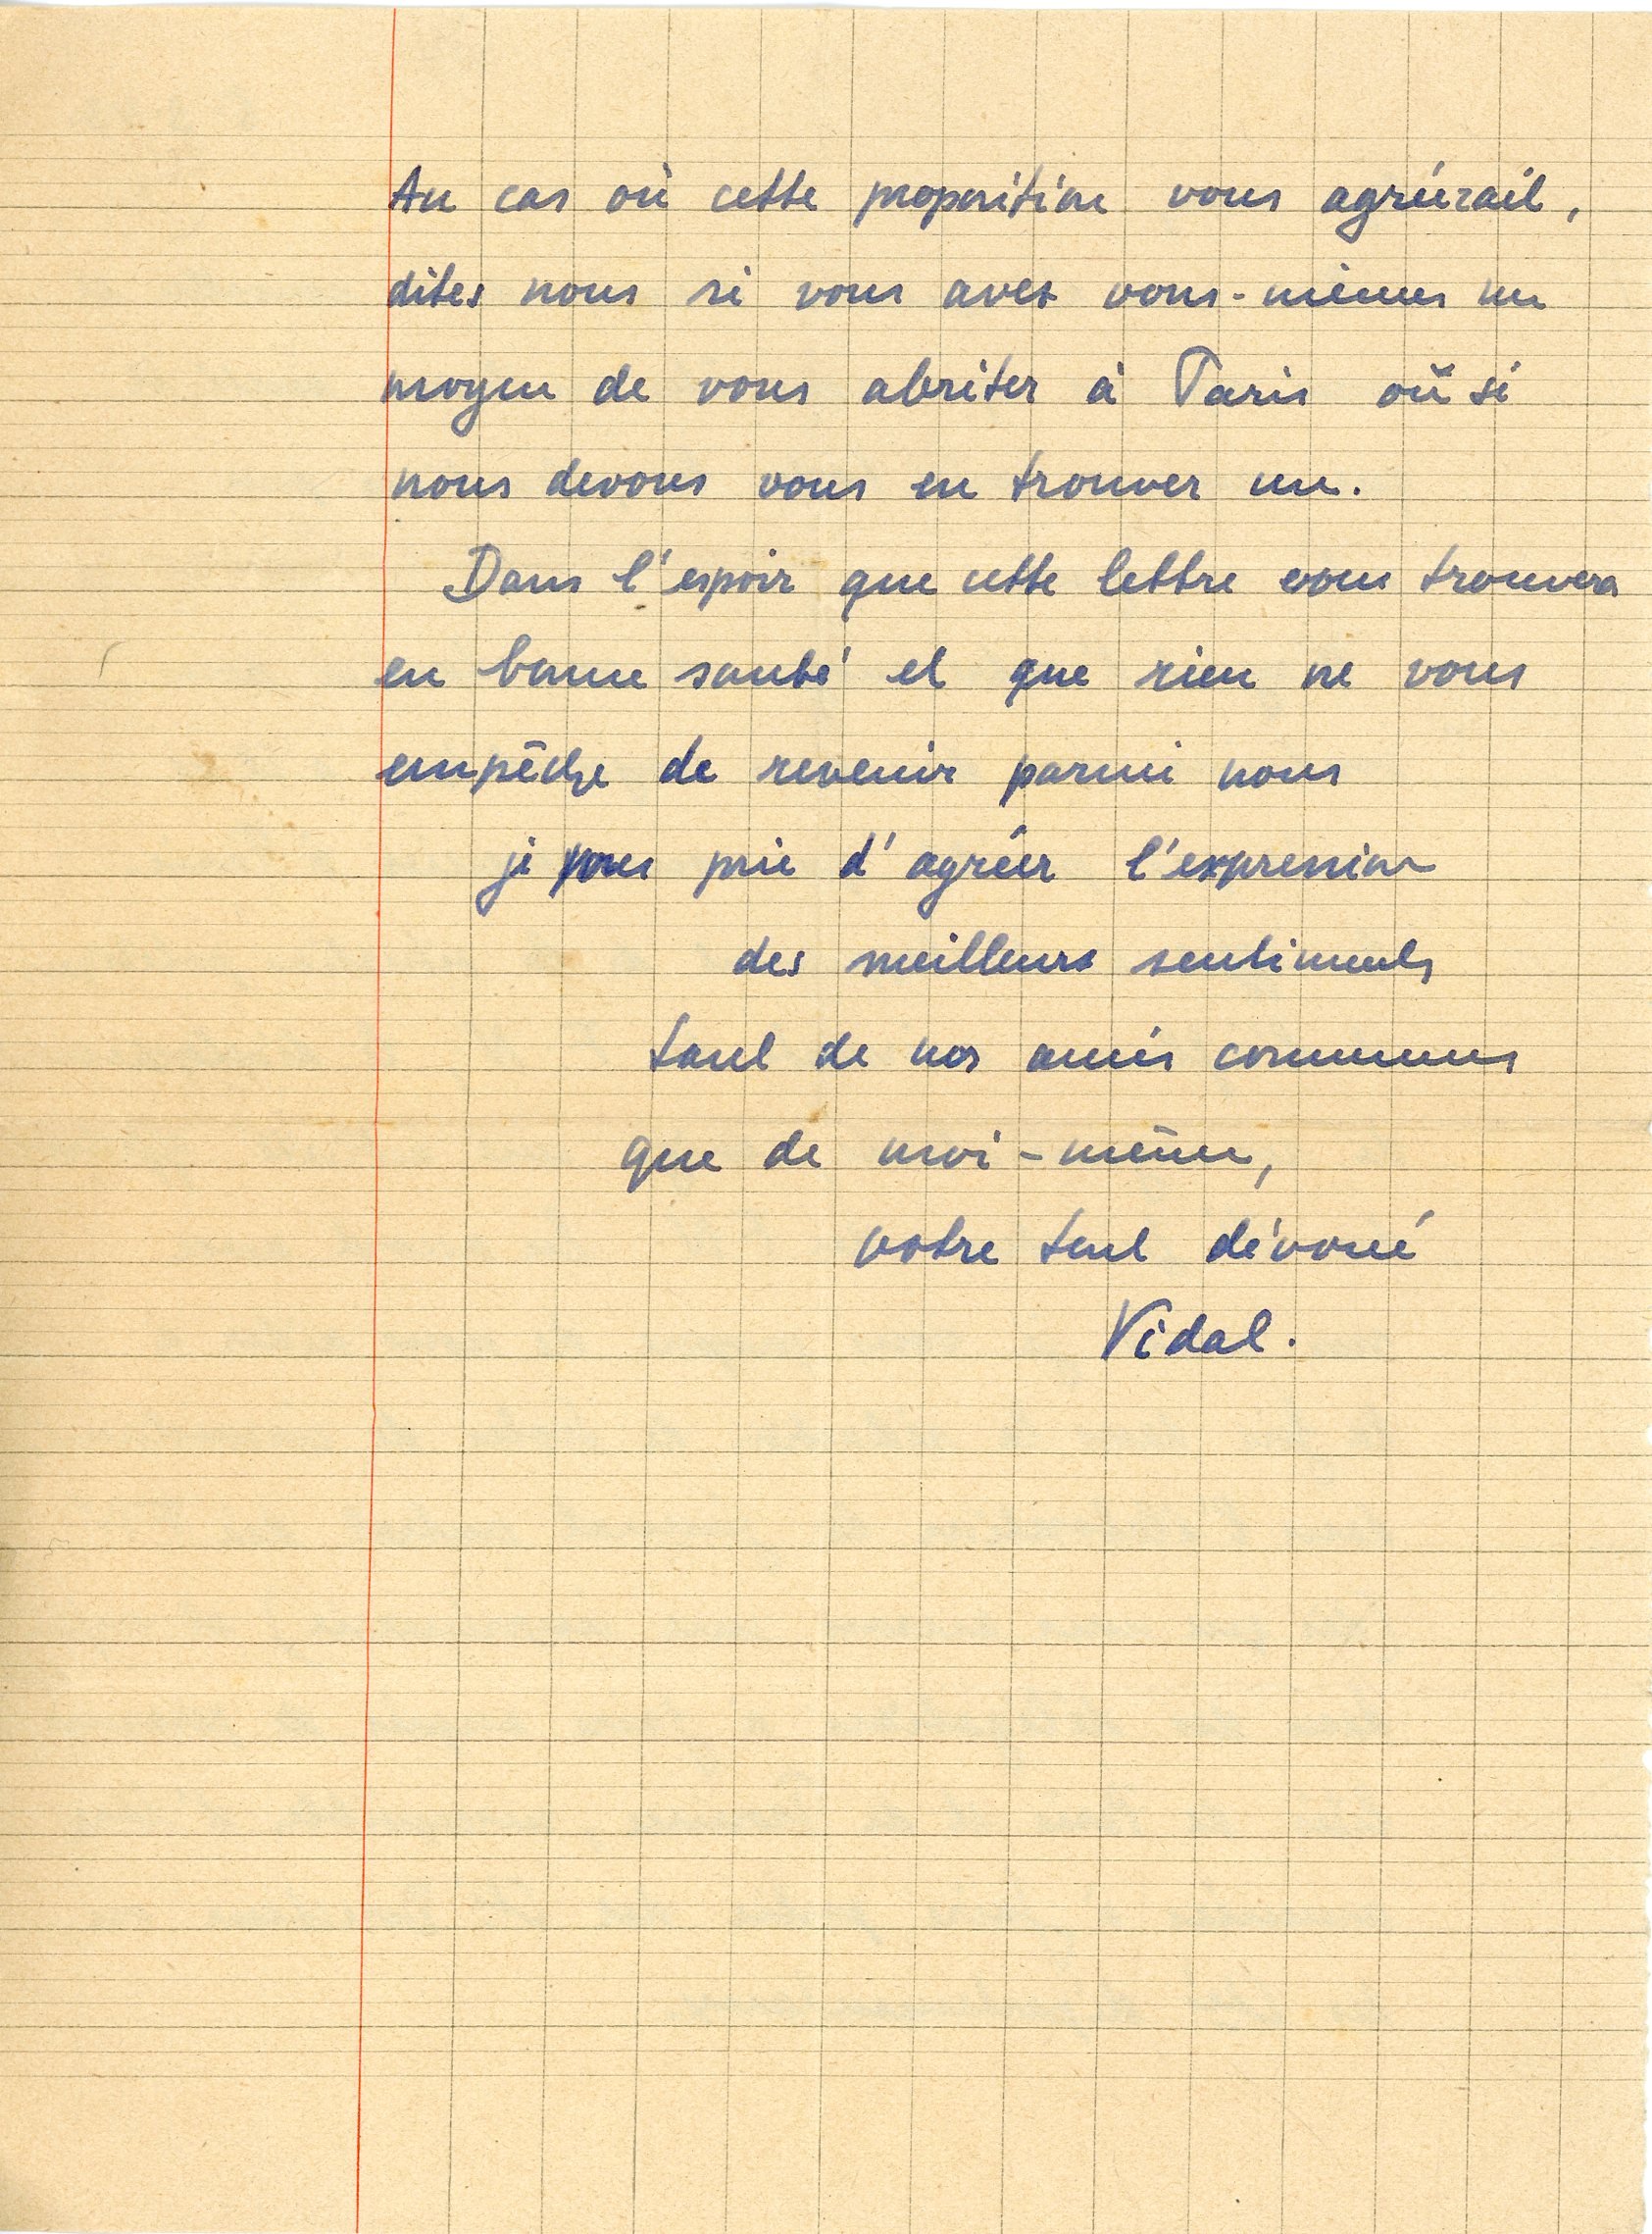 Au cas où cette proposition vous agréerait,
dites nous si vous avez vous-mêmes un
moyen de vous abriter à Paris où si
nous devons vous en trouver un.
Dans l'espoir que cette lettre vous trouvera
en bonne santé et que rien ne vous
empêche de revenir parmi nous
je vous prie d'agréer l'expression
des meilleurs sentiments
tant de nos amis communs
que de moi-même,
votre tout dévoué
Vidal.